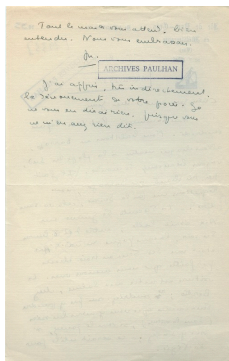 Tout le monde vous attend, bien
entendu. Nous vous embrassons.
Jn.
ARCHIVES PAULHAN
J'ai appris, très indirectement,
le dénouement de votre procès. Je
ne vous en dirai rien, puisque vous
ne m'en avez rien dit.